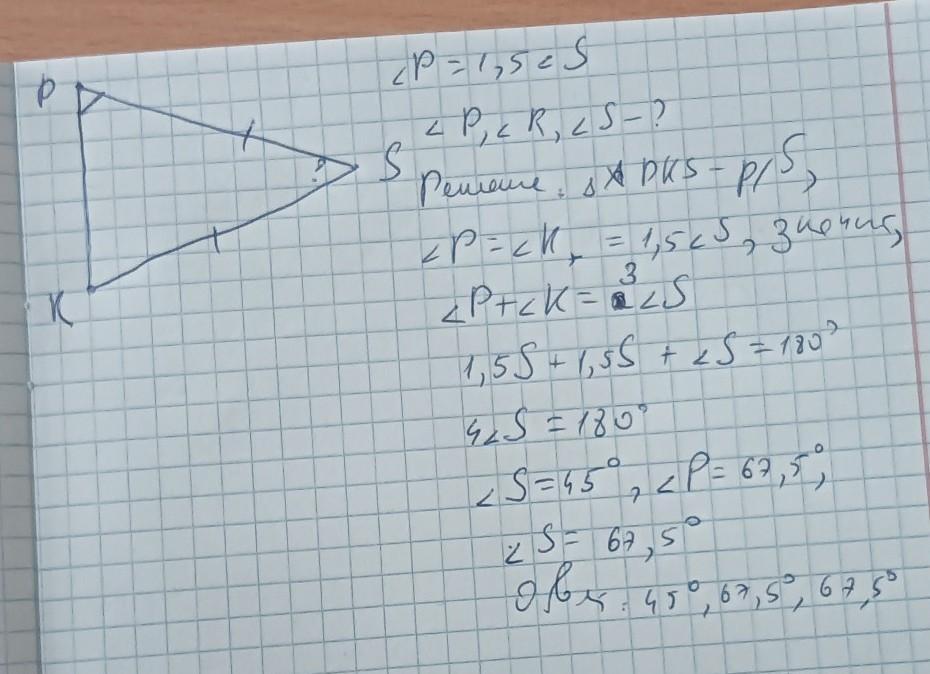 P
S
K
?
∠P = 1,5∠S
∠P, ∠K, ∠S - ?
Решение. Δ PKS - р/S,
∠P = ∠K, = 1,5∠S, значит,
∠P + ∠K = 3∠S
1,5S + 1,5S + ∠S = 180°
4∠S = 180°
∠S = 45°, ∠P = 67,5°,
∠S = 67,5°
Ответ: 45°, 67,5°, 67,5°